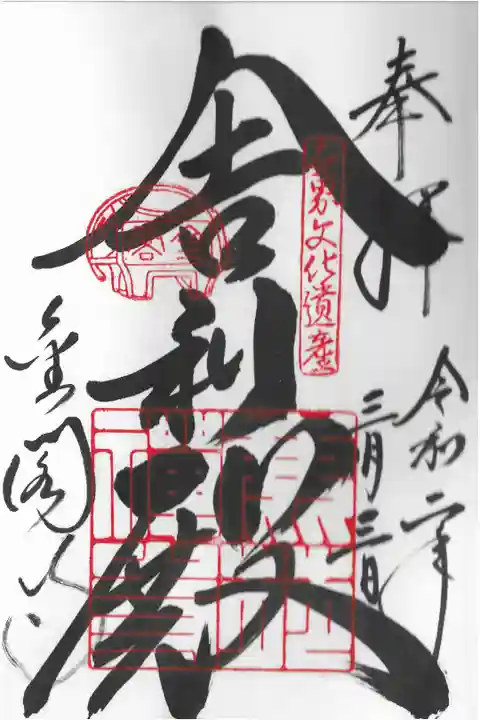 奉拝
令和二年
三月三日
世界文化遺産
舎利殿
金閣寺